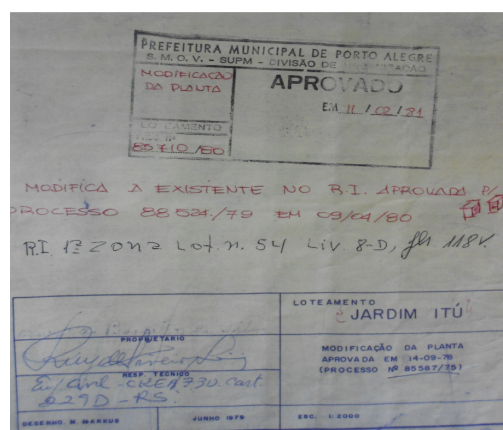 PREFEITURA MUNICIPAL DE PORTO ALEGRE
S. M. O. V. - SUPM - DIVISÃO DE
MODIFICAÇÃO
DA PLANTA
APROVADO
EM 11 / 02 / 81
LOTEAMENTO
85710/80
MODIFICA A EXISTENTE NO R.I. APROVADA P/
PROCESSO 88524/79 EM 09/04/80
R.I. 1ª ZONA Lot. n. 54 Liv. 8-D, fls 118V.
PROPRIETARIO
RESP. TECNICO
Eng. Civil - CREA 730. Cart.
DESENHO. N. MARKUS
JUNHO 1979
LOTEAMENTO
JARDIM ITÚ
MODIFICAÇÃO DA PLANTA
APROVADA EM 14-09-78
(PROCESSO Nº 85587/75)
ESC. 1: 2000